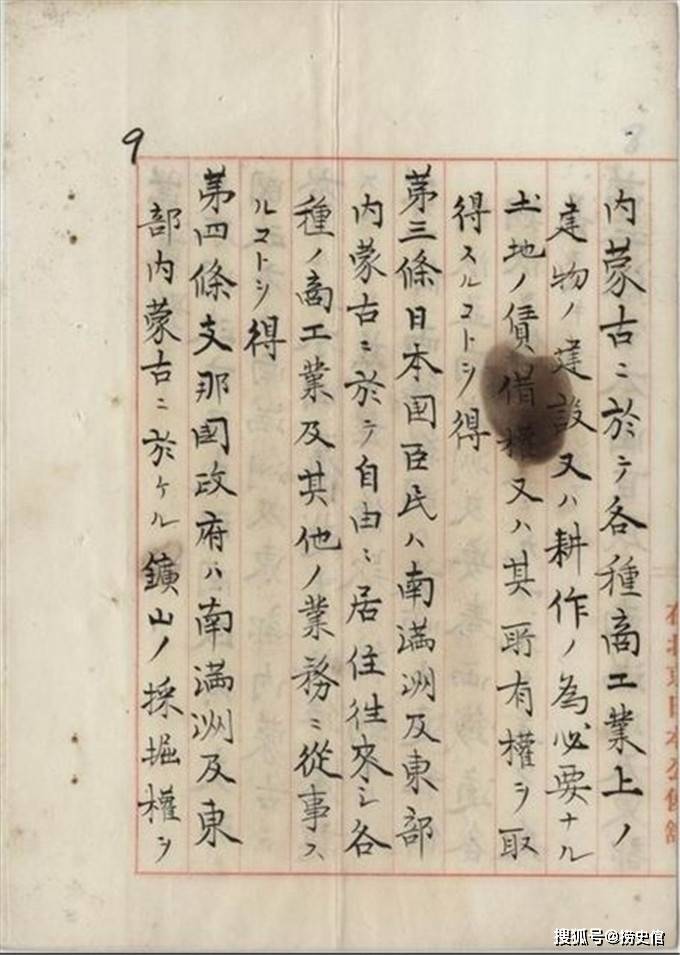 9
在北京日本公使館
内蒙古ニ於テ各種商工業上ノ
建物ノ建設又ハ耕作ノ為必要ナル
土地ノ賃借權又ハ其所有權ヲ取
得スルコトヲ得
第三條日本國臣民ハ南満洲及東部
内蒙古ニ於テ自由ニ居住往來シ各
種ノ商工業及其他ノ業務ニ從事ス
ルコトヲ得
第四條支那國政府ハ南満洲及東
部内蒙古ニ於ケル鑛山ノ採掘權ヲ
搜狐号@捞史馆